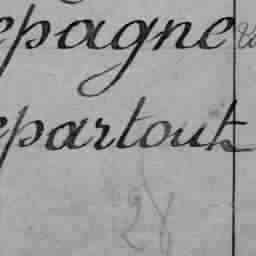 epagne
epartout
28